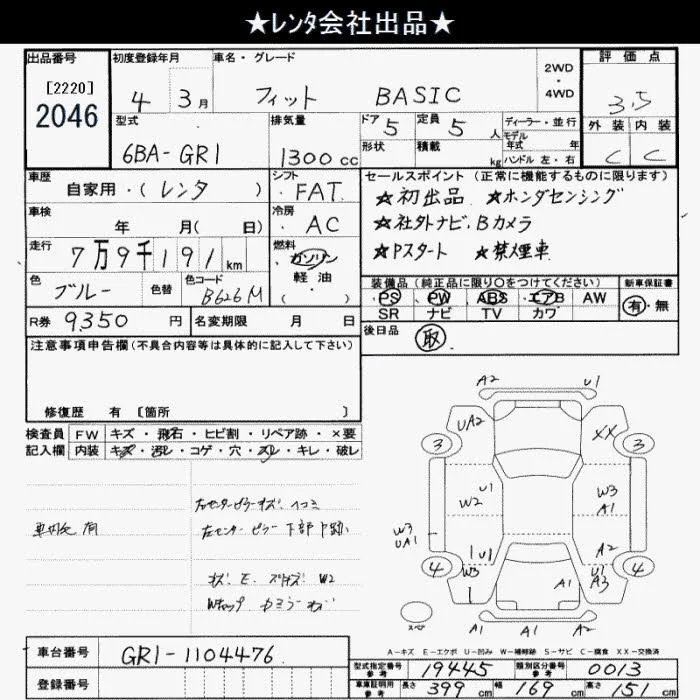 ★レンタ会社出品★
出品番号
[2220]
2046
初度登録年月
4年3月
車名・グレード
フィット BASIC
2WD・4WD
評価点
3.5
外装 内装
C C
型式
6BA-GR1
排気量
1300cc
ドア 5
形状
定員 5人
積載 kg
ディーラー・並行
モデル年式 年
ハンドル 左・右
車歴
自家用・(レンタ)
シフト
FAT
車検
年 月( 日)
冷房
AC
走行
7万9千191km
燃料
ガソリン
軽油
( )
色
ブルー
色替
色コード
B626M
R券 9,350円
名変期限 月 日
セールスポイント(正常に機能するものに限ります)
★初出品 ★ホンダセンシング
★社外ナビ、Bカメラ
★Pスタート ★禁煙車
装備品(純正品に限り○をつけてください)
PS PW ABS エアB AW
SR ナビ TV カワ
新車保証書
有・無
後日品
取
注意事項申告欄(不具合内容等は具体的に記入して下さい)
修復歴 有 [箇所 ]
検査員記入欄
FW キズ・飛石・ヒビ割・リペア跡・×要
内装 キズ・汚レ・コゲ・穴・スレ・キレ・破レ
左センターピラー下部
キズ. E. W2
A2 U1
UA2 XX
3 3
U1
W2
W3
A1
W3
UA1
U1
A2
4 4
W3
U1
A1 A3
スペア
A1 A1 A2
A-キズ E-エクボ U-凹み W-補修跡 S-サビ C-腐食 XX-交換済
車台番号
GR1-1104476
登録番号
型式指定番号 参考 19445
類別区分番号 参考 0013
車庫証明用 参考 長さ 399cm 幅 169cm 高さ 151cm